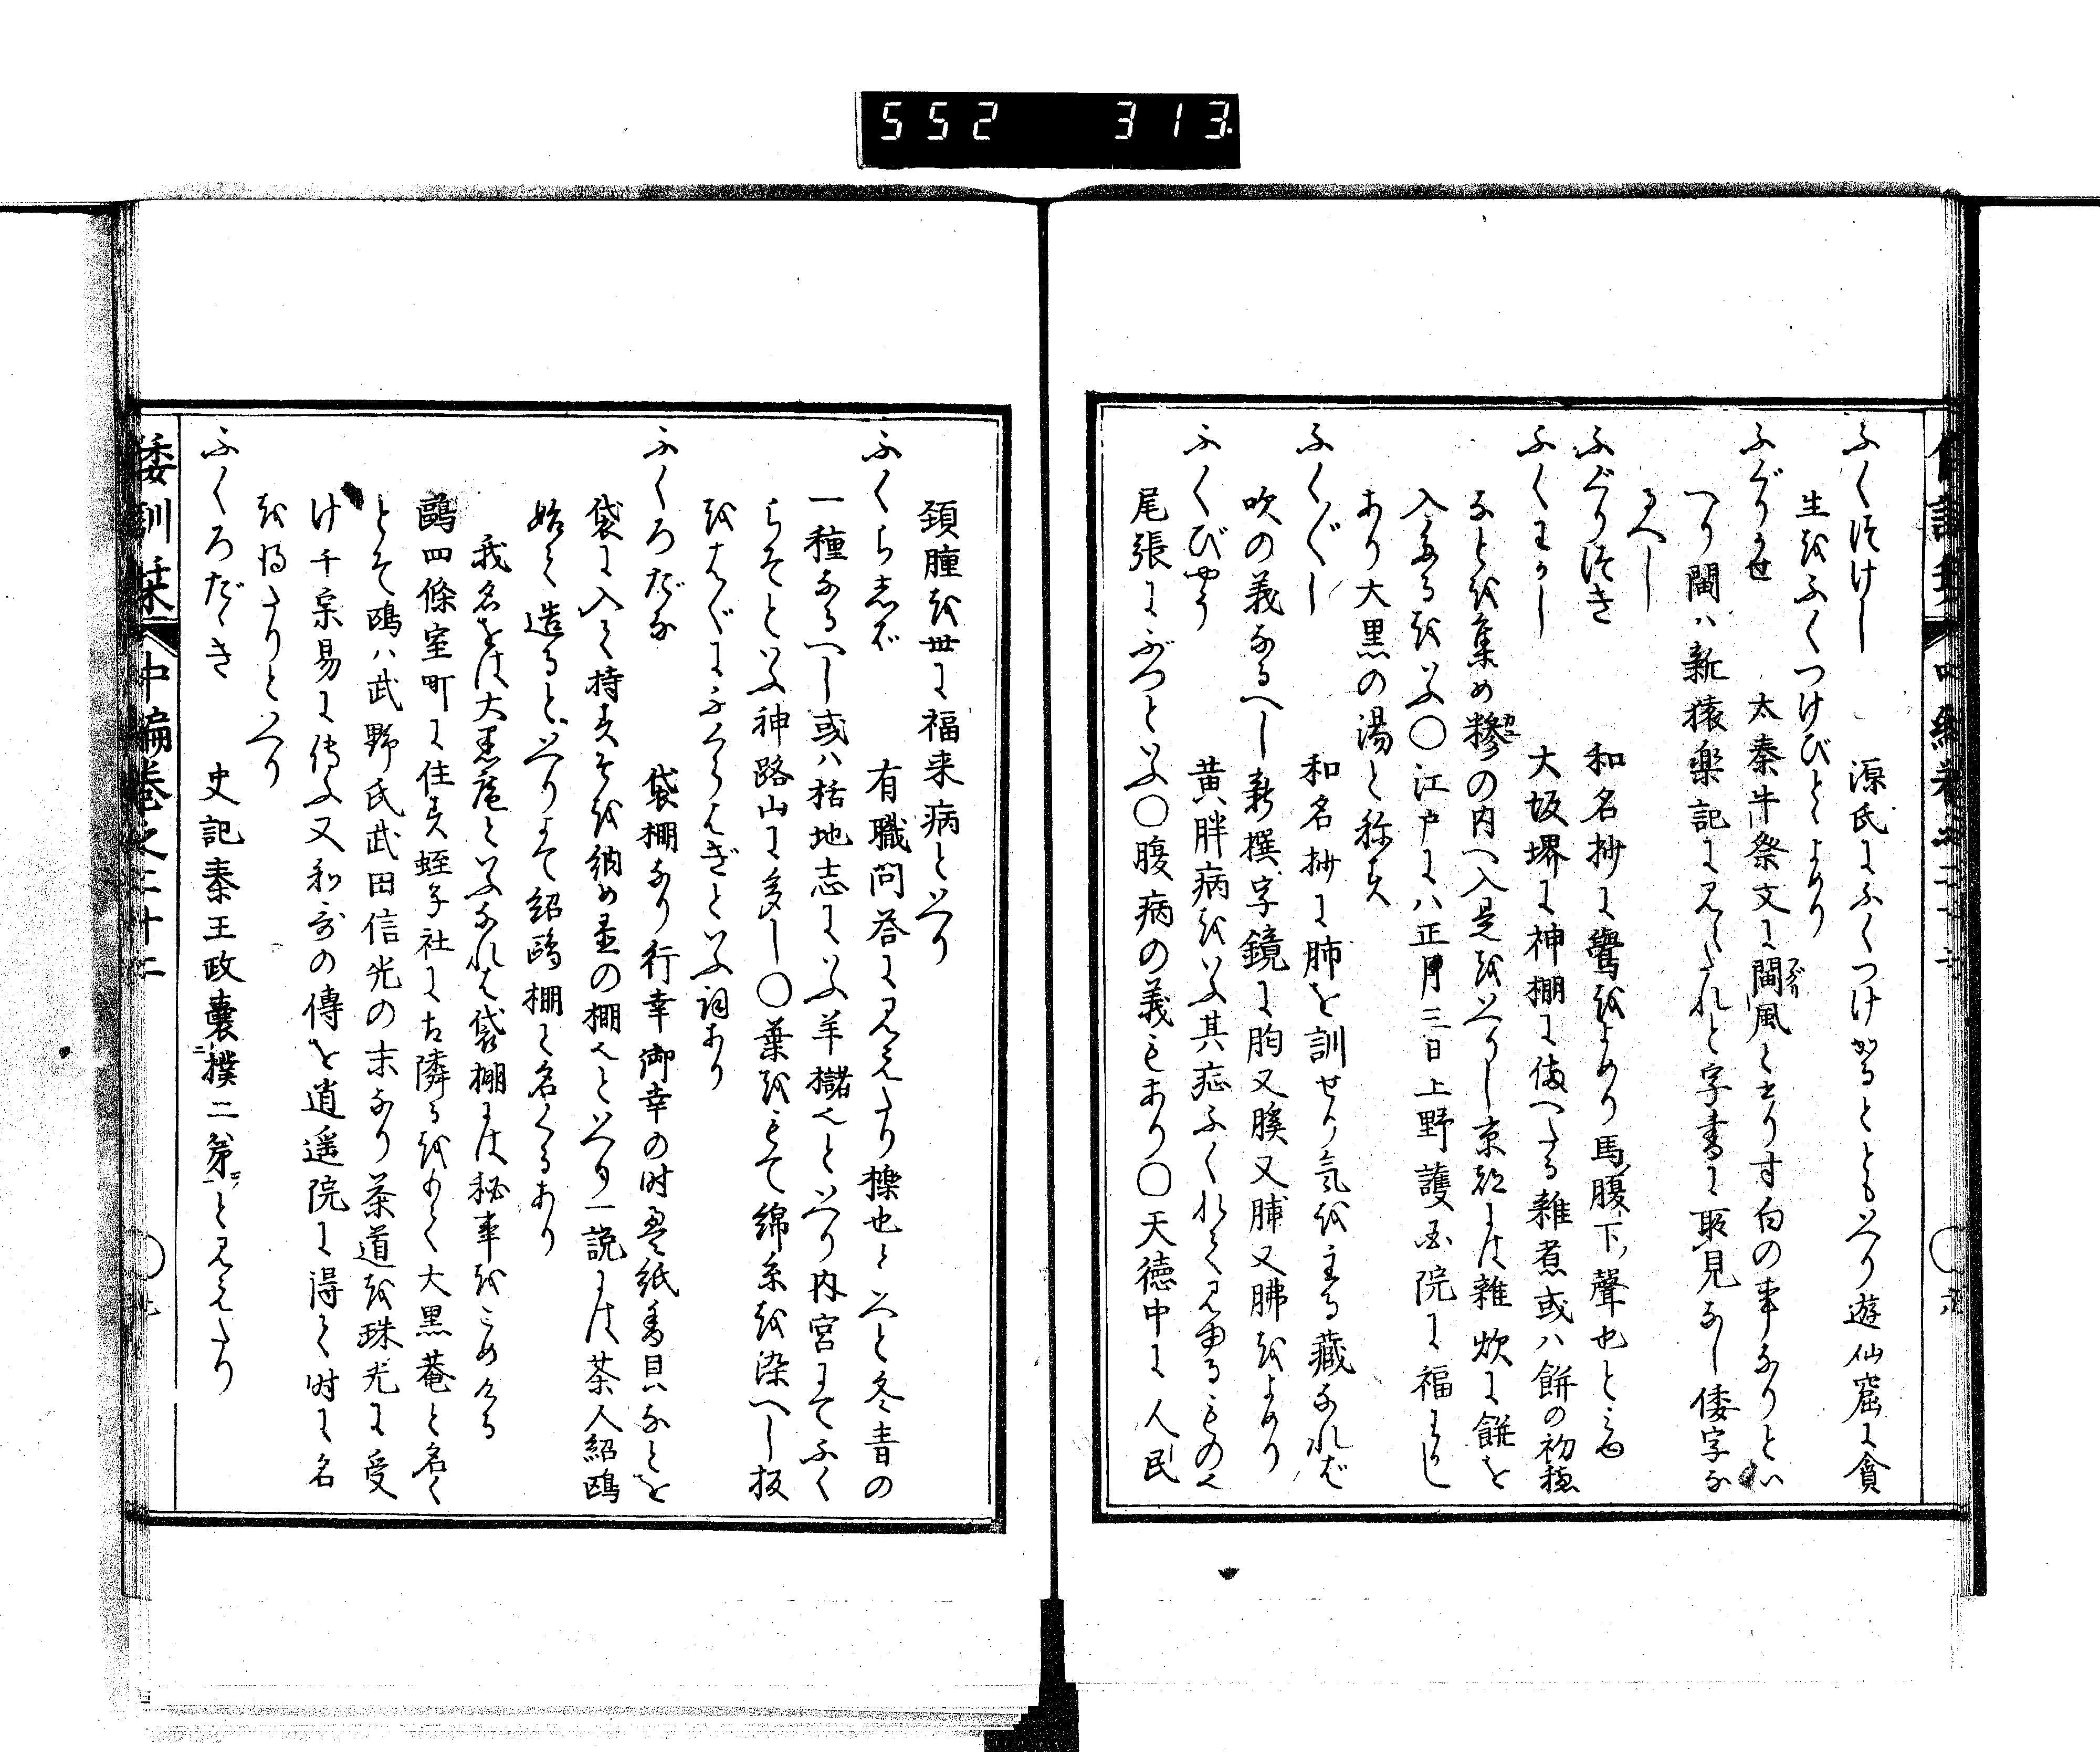 552 313
ふくつけし 源氏にふくつけがるともいへり遊仙窟に貪
生をふくつけびとゝよめり
ふぐりかせ 太秦牛祭文に閫風と云り寸白の事なりとい
へり閫ハ新猿楽記に見えたれと字書に所見なし倭字な
るへし
ふぐりつき 和名抄に驧をよめり馬腹下声也とみゆ
ふくわかし 大坂堺に神棚に備へたる雑煮或ハ餅の初穂
なとを集め糝の内へ入是をいへりし京都には雑炊に餅を
入たるをいふ〇江戸にハ正月三日上野護国院に福わかし
あり大黒の湯と称す
ふくぐし 和名抄に肺を訓せり気を主る蔵なれば
吹の義なるへし新撰字鏡に又又脯又をよめり
ふくびやう 黄胖病をいふ其症ふくれて見ゆるもの也
尾張にぶつといふ〇腹病の義もあり〇天徳中に人民
頸腫を世に福来病といへり
ふくらしば 有職問答に見えたり檪也といへと冬青の
一種なるへし或ハ括地志にいふ羊櫧也といへり内宮にてふく
らそといふ神路山に多し〇葉をもて綿糸を染へし板
をはぐにふくらはぎといふ詞あり
ふくろだな 袋棚なり行幸御幸の時畳紙香具なとを
袋に入て持すそを納め置の棚也といへり一説には茶人紹鴎
始て造るといへりよて紹鴎棚と名くるあり
我名をは大黒庵といふなれは袋棚には秘事をこめける
鴎四條室町に住す蛭子社に古隣るをもて大黒菴と名く
とそ鴎ハ武野氏武田信光の末なり茶道を珠光に受
け千宗易に伝ふ又和哥の伝を逍遥院に得て時に名
を得たりといへり
ふくろだゝき 史記秦王政嚢撲二弟と見えたり
倭訓栞 中編巻之二十二